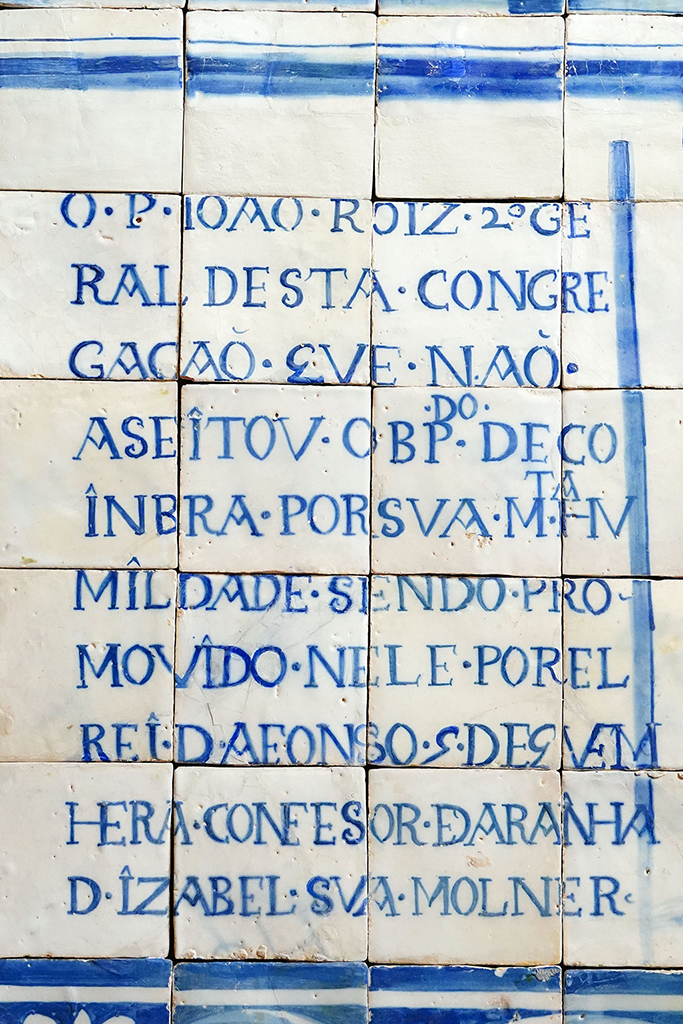 O·P·IOAO·ROIZ·2ºGE
RAL DESTA·CONGRE
GACAÕ·QVE·NAÕ·
ASEÎTOV·O BP·DO·DECO
ÎNBRA·PORSVA·M·TA HV
MÎLDADE·SENDO·PRO-
MOVÎDO·NELE·POREL
REÎ·D·AFONSO·5·DEQVEM
HERA·CONFESOR·DARANHA
D·ÎZABEL·SVA·MOLHER·